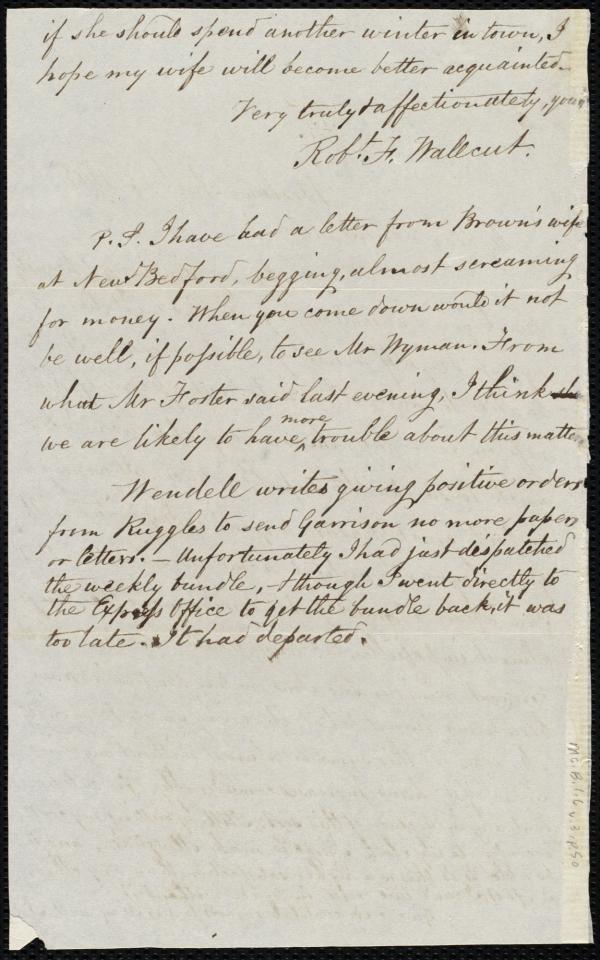 if she should spend another winter in town, I
hope my wife will become better acquainted.
Very truly & affectionately, your
Robt. F. Wallcut.
P.S. I have had a letter from Brown's wife
at New Bedford, begging, almost screaming
for money. When you come down would it not
be well, if possible, to see Mr Wyman. From
what Mr Foster said last evening, I think
we are likely to have more trouble about this matter
Wendell writes giving positive orders
from Ruggles to send Garrison no more papers
or letters. – Unfortunately I had just despatched
the weekly bundle, & though I went directly to
the Express Office to get the bundle back, it was
too late. It had departed.